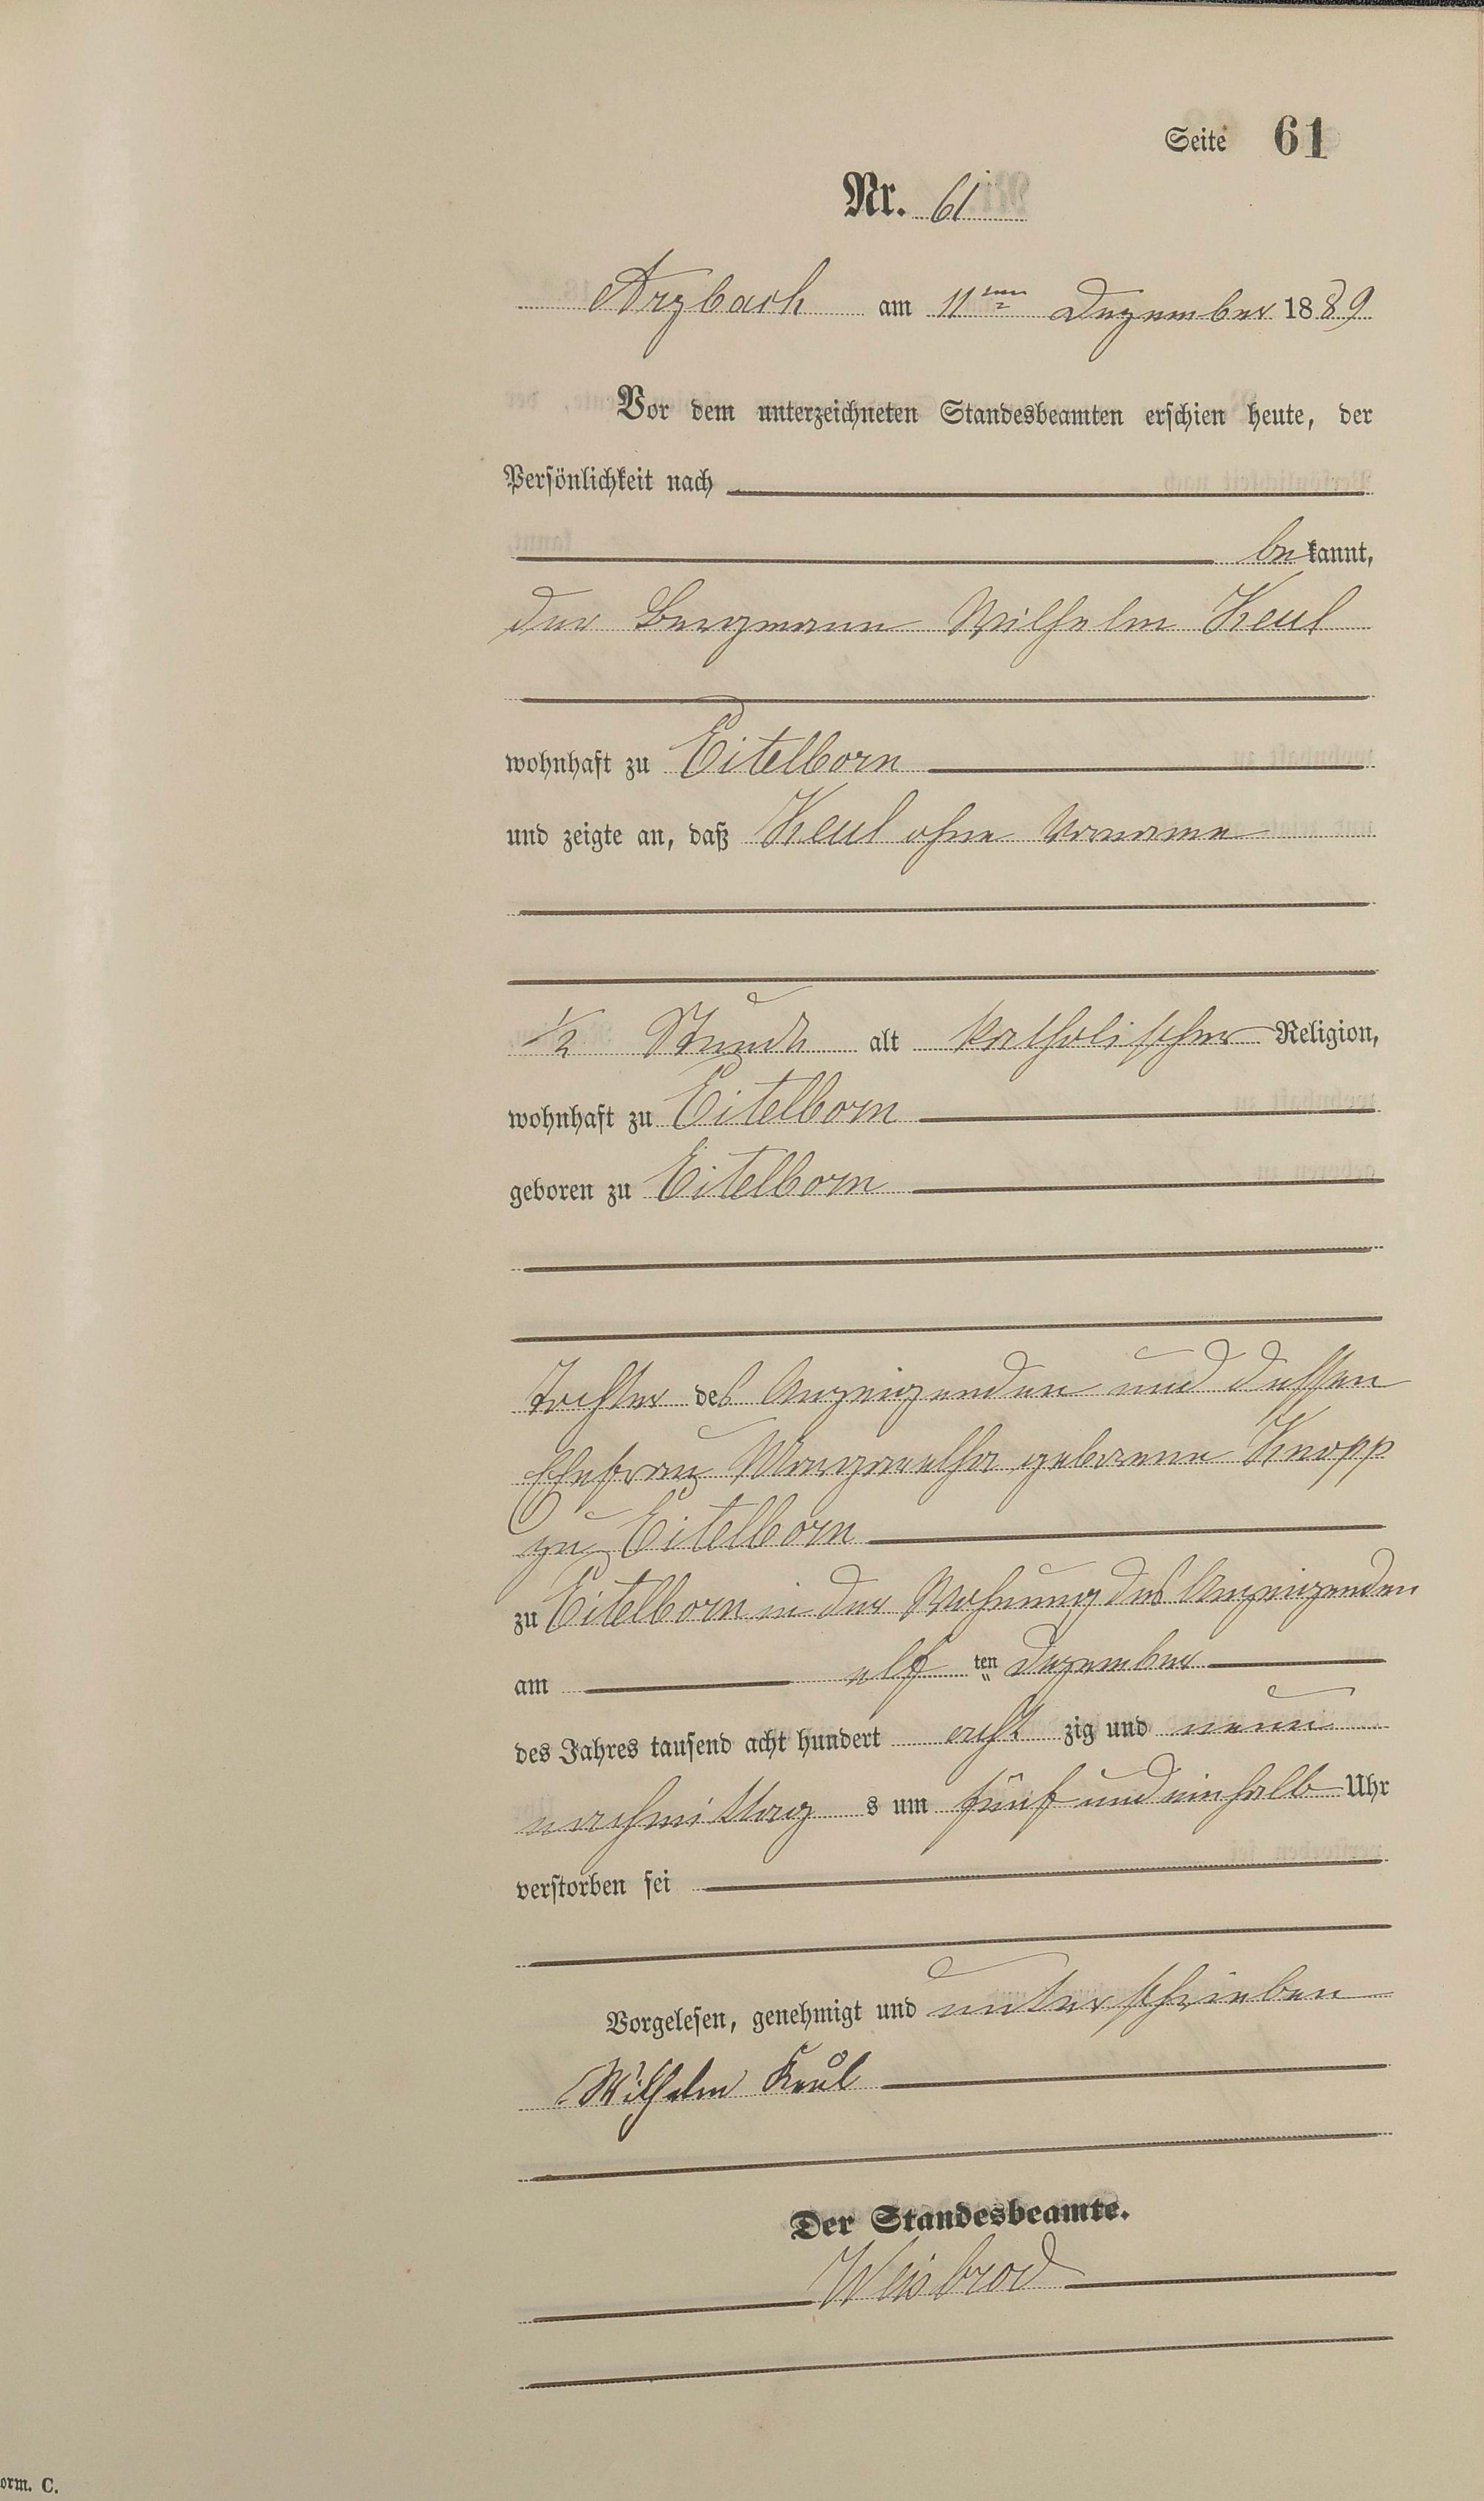 Seite 61
Nr. 61
Arzbach am 11ten Dezember 1889
Vor dem unterzeichneten Standesbeamten erschien heute, der
Persönlichkeit nach
be kannt,
der Bergmann Wilhelm Keul
wohnhaft zu Eitelborn
und zeigte an, daß Keul ohne Vorname
1/2 Stunde alt katholischer Religion,
wohnhaft zu Eitelborn
geboren zu Eitelborn
Tochter des Anzeigenden und dessen
Ehefrau Margaretha geborene Knopp
zu Eitelborn
zu Eitelborn in der Wohnung des Anzeigenden
am elf ten Dezember
des Jahres tausend acht hundert acht zig und neun
nachmittag s um fünf und einhalb Uhr
verstorben sei
Vorgelesen, genehmigt und unterschrieben
Wilhelm Keul
Der Standesbeamte.
Weisbrod
orm. C.